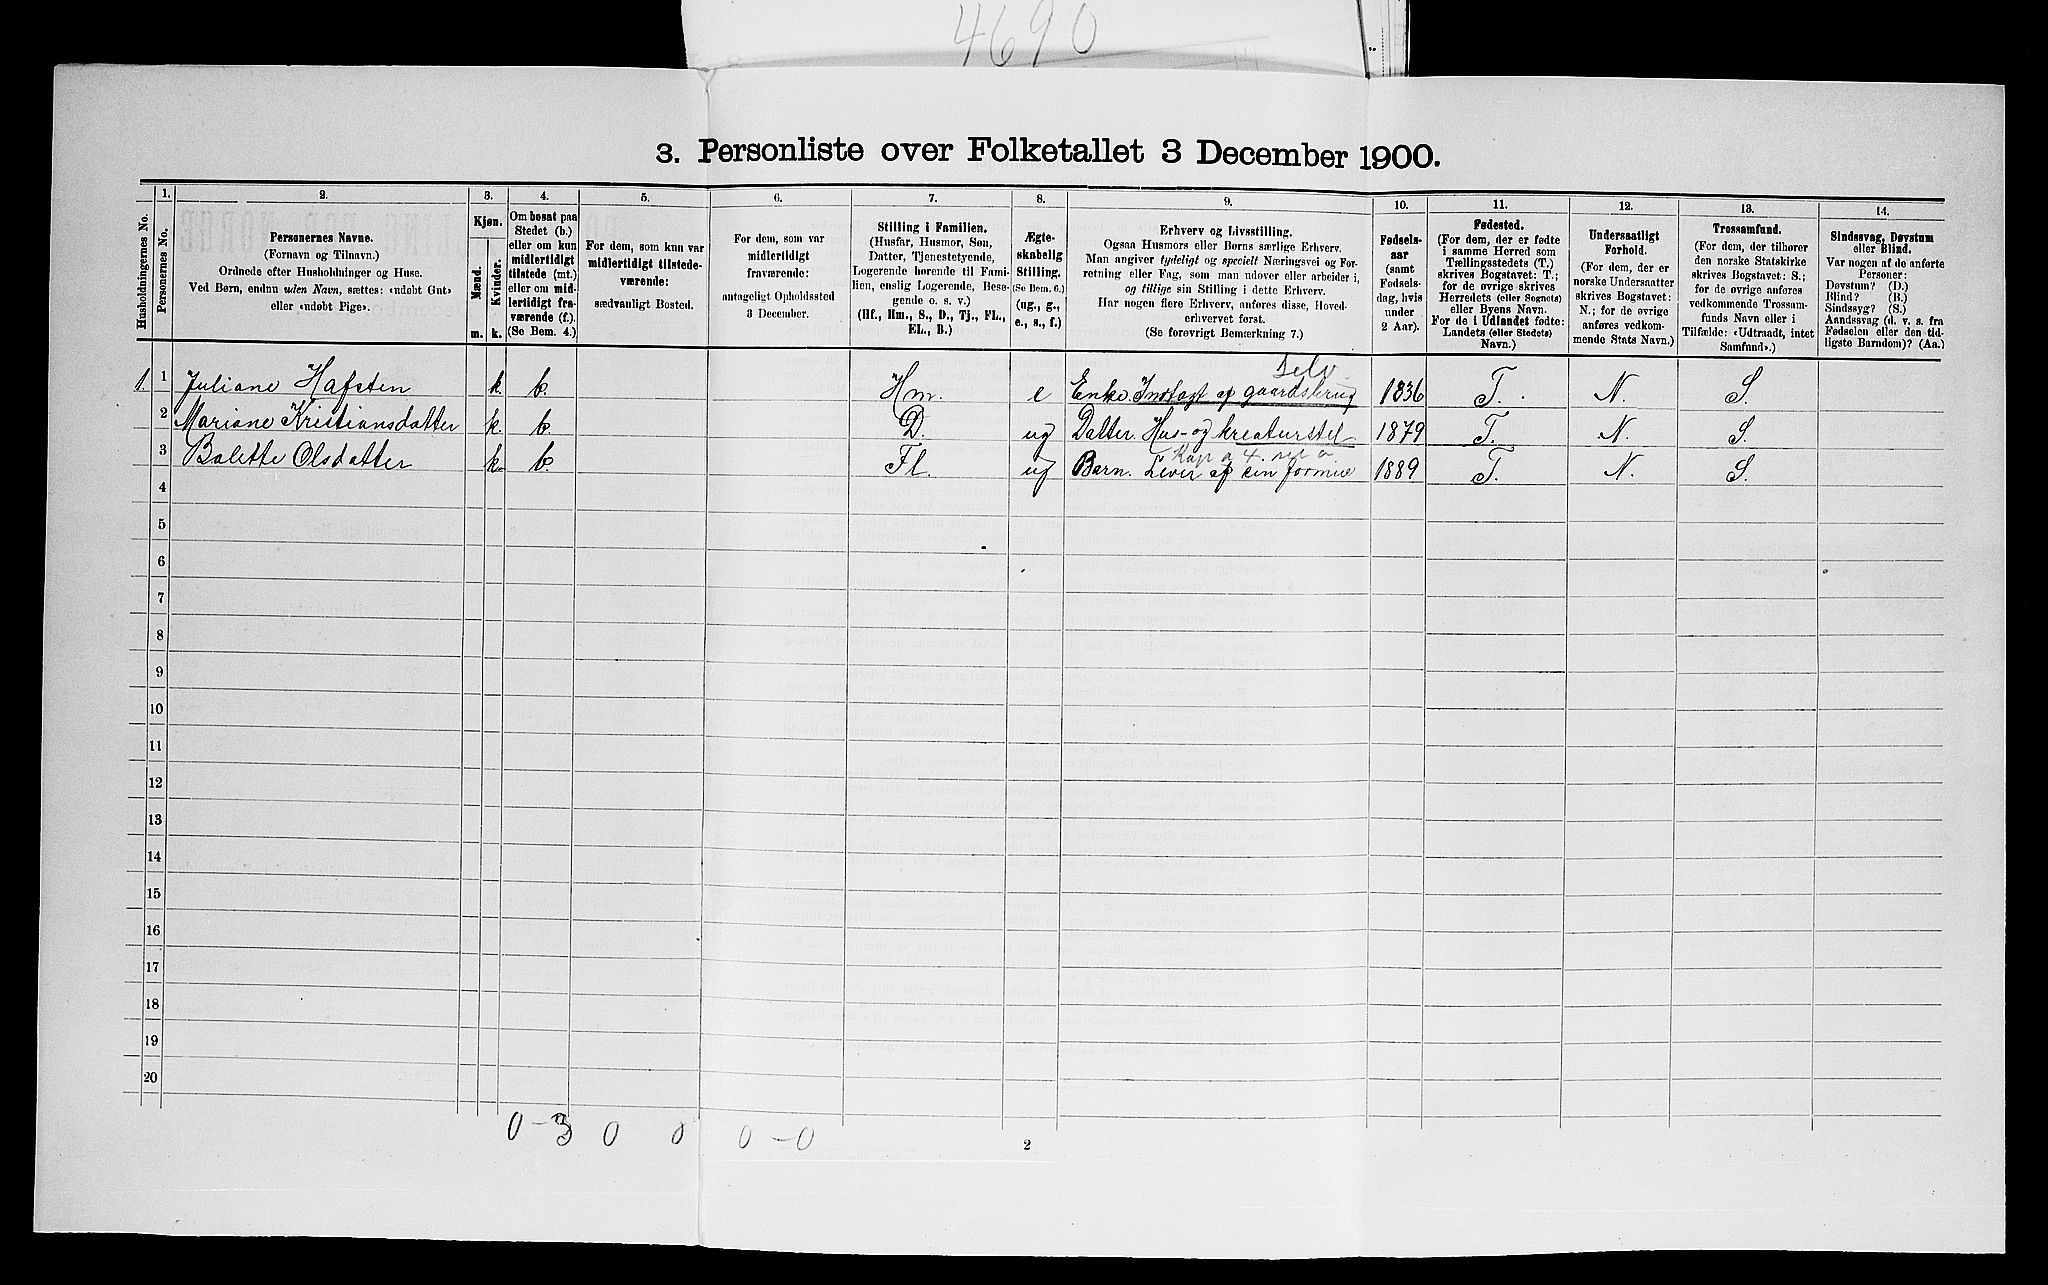 4690
3. Personliste over Folketallet 3 December 1900.
Husholdningernes No.
1.
Personernes No.
2.
Personernes Navne.
(Fornavn og Tilnavn.)
Ordnede efter Husholdninger og Huse.
Ved Børn, endnu uden Navn, sættes: «udøbt Gut»
eller «udøbt Pige».
3.
Kjøn.
Mænd.
Kvinder.
m. k.
4.
Om bosat paa
Stedet (b.)
eller om kun
midlertidigt
tilstede (mt.)
eller om mid-
lertidigt fra-
værende (f.).
(Se Bem. 4.)
5.
For dem, som kun var
midlertidigt tilstede-
værende:
sædvanligt Bosted.
6.
For dem, som var
midlertidigt
fraværende:
antageligt Opholdssted
3 December.
7.
Stilling i Familien.
(Husfar, Husmor, Søn,
Datter, Tjenestetyende,
Logerende hørende til Fami-
lien, enslig Logerende, Besø-
gende o. s. v.)
(Hf., Hm., S., D., Tj., FL.,
EL., B.)
8.
Ægte-
skabelig
Stilling.
(Se Bem. 6.)
(ug., g.,
e., s., f.)
9.
Erhverv og Livsstilling.
Ogsaa Husmors eller Børns særlige Erhverv.
Man angiver tydeligt og specielt Næringsvei og For-
retning eller Fag, som man udøver eller arbeider i,
og tillige sin Stilling i dette Erhverv.
Har nogen flere Erhverv, anføres disse, Hoved-
erhvervet først.
(Se forøvrigt Bemærkning 7.)
10.
Fødsels-
aar
(samt
Fødsels-
dag, hvis
under
2 Aar).
11.
Fødested.
(For dem, der er fødte
i samme Herred som
Tællingsstedets (T.)
skrives Bogstavet: T.;
for de øvrige skrives
Herredets (eller Sognets)
eller Byens Navn.
For de i Udlandet fødte:
Landets (eller Stedets)
Navn.)
12.
Undersaatligt
Forhold.
(For dem, der er
norske Undersaatter
skrives Bogstavet:
N.; for de øvrige
anføres vedkom-
mende Stats Navn.)
13.
Trossamfund.
(For dem, der tilhører
den norske Statskirke
skrives Bogstavet: S.;
for de øvrige anføres
vedkommende Trossam-
funds Navn eller i
Tilfælde: «Udtraadt, intet
Samfund».)
14.
Sindssvag, Døvstum
eller Blind.
Var nogen af de anførte
Personer:
Døvstum? (D.)
Blind? (B.)
Sindssyg? (S.)
Aandssvag (d. v. s. fra
Fødselen eller den tid-
ligste Barndom)? (Aa.)
Selv.
1. 1 Juliane Hafsten k. b. Hm. e Enke. Indtægt af gaardsbrug 1836 T. N. S.
2 Mariane Kristiansdatter k. b D. ug Datter. Hus- og kreaturstel 1879 T. N. S.
3 Bolette Olsdatter k. b. Fl. ug Barn. Lever af sin formue 1889 T. N. S.
4
5
6
7
8
9
10
11
12
13
14
15
16
17
18
19
20
0-3 0 0 0-0
2